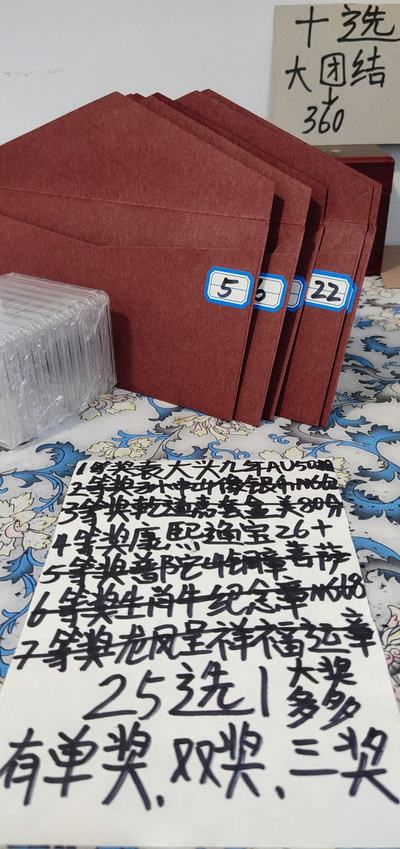 十选
大团结
+
360
5
6
22
1等奖袁大头九年AU50
2等奖孙小头
3等奖乾道嘉宝
美80分
4等奖康熙通宝26+
5等奖普陀山铜章菩萨
6等奖生肖牛纪念章MS68
7等奖龙凤呈祥福运章
25选1
大奖
多多
有单奖.双奖.三奖